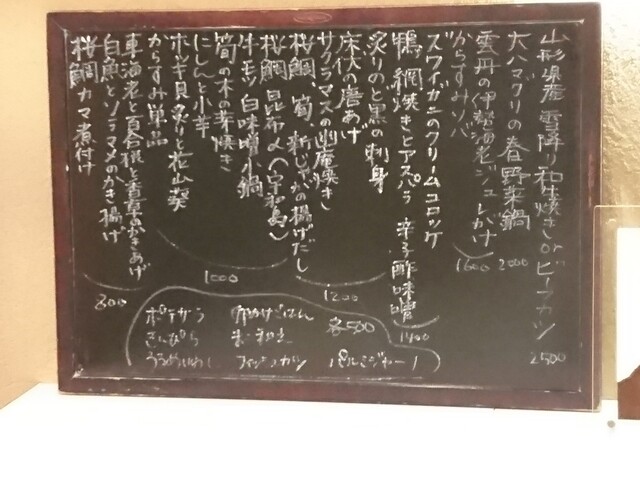 山形県産 雪降り和牛焼き or ビーフカツ
2500
大ハマグリの春野菜鍋
2000
雲丹の伊勢海老ジュレがけ
からすみソバ
1600
ズワイガニのクリームコロッケ
鴨、網焼きとアスパラ 辛子酢味噌
1400
炙りのど黒の刺身
床伏の唐あげ
サクラマスの幽庵焼き
桜鯛、筍、新じゃがの揚げだし
1200
桜鯛 昆布〆(宇和島)
牛モツ白味噌小鍋
筍の木の芽焼き
にしんと小芋
1000
ホッキ貝 炙りと花山葵
からすみ単品
車海老と百合根と香草のかきあげ
白魚とソラマメのかき揚げ
桜鯛カマ煮付け
800
各500
パルミジャーノ
卵かけごはん
フィッシュカツ
ポテサラ
きんぴら
うるめいわし